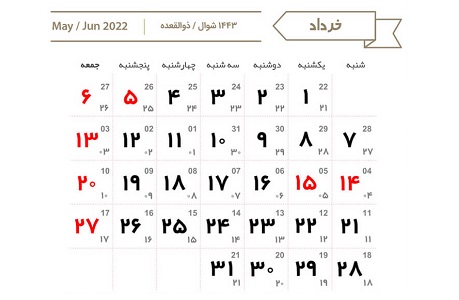 خرداد
۱۴۴۳ شوال / ذوالقعده
May / Jun 2022
شنبه یکشنبه دوشنبه سه شنبه چهارشنبه پنجشنبه جمعه
22 23 24 25 26 27
۱ ۲ ۳ ۴ ۵ ۶
۲۱ ۲۲ ۲۳ ۲۴ ۲۵ ۲۶
28 29 30 31 01 02 03
۷ ۸ ۹ ۱۰ ۱۱ ۱۲ ۱۳
۲۷ ۲۸ ۲۹ ۳۰ ۰۱ ۰۲ ۰۳
04 05 06 07 08 09 10
۱۴ ۱۵ ۱۶ ۱۷ ۱۸ ۱۹ ۲۰
۰۴ ۰۵ ۰۶ ۰۷ ۰۸ ۰۹ ۱۰
11 12 13 14 15 16 17
۲۱ ۲۲ ۲۳ ۲۴ ۲۵ ۲۶ ۲۷
۱۱ ۱۲ ۱۳ ۱۴ ۱۵ ۱۶ ۱۷
18 19 20 21
۲۸ ۲۹ ۳۰ ۳۱
۱۸ ۱۹ ۲۰ ۲۱